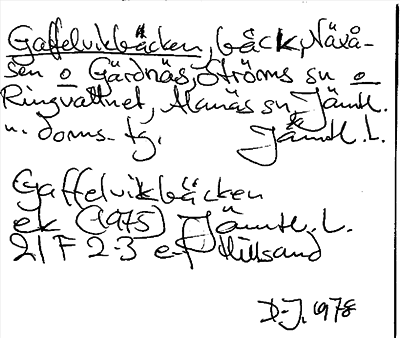 Gaffelvikbäcken, bäck, Nävå-
sen o Gärdnäs, Ströms sn o
Ringvattnet, Alanäs sn, Jämtl.
u. doms. tg. Jämtl. L.
Gaffelvikbäcken
ek (1975) Jämtl. L.
21 F 2-3 e-f Hillsand
D-J. 1978